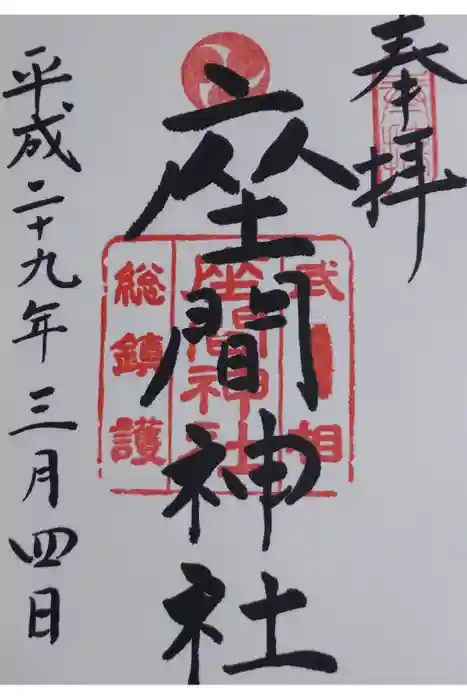 奉拝
座間神社
平成二十九年三月四日
相
座間神社
総鎮護